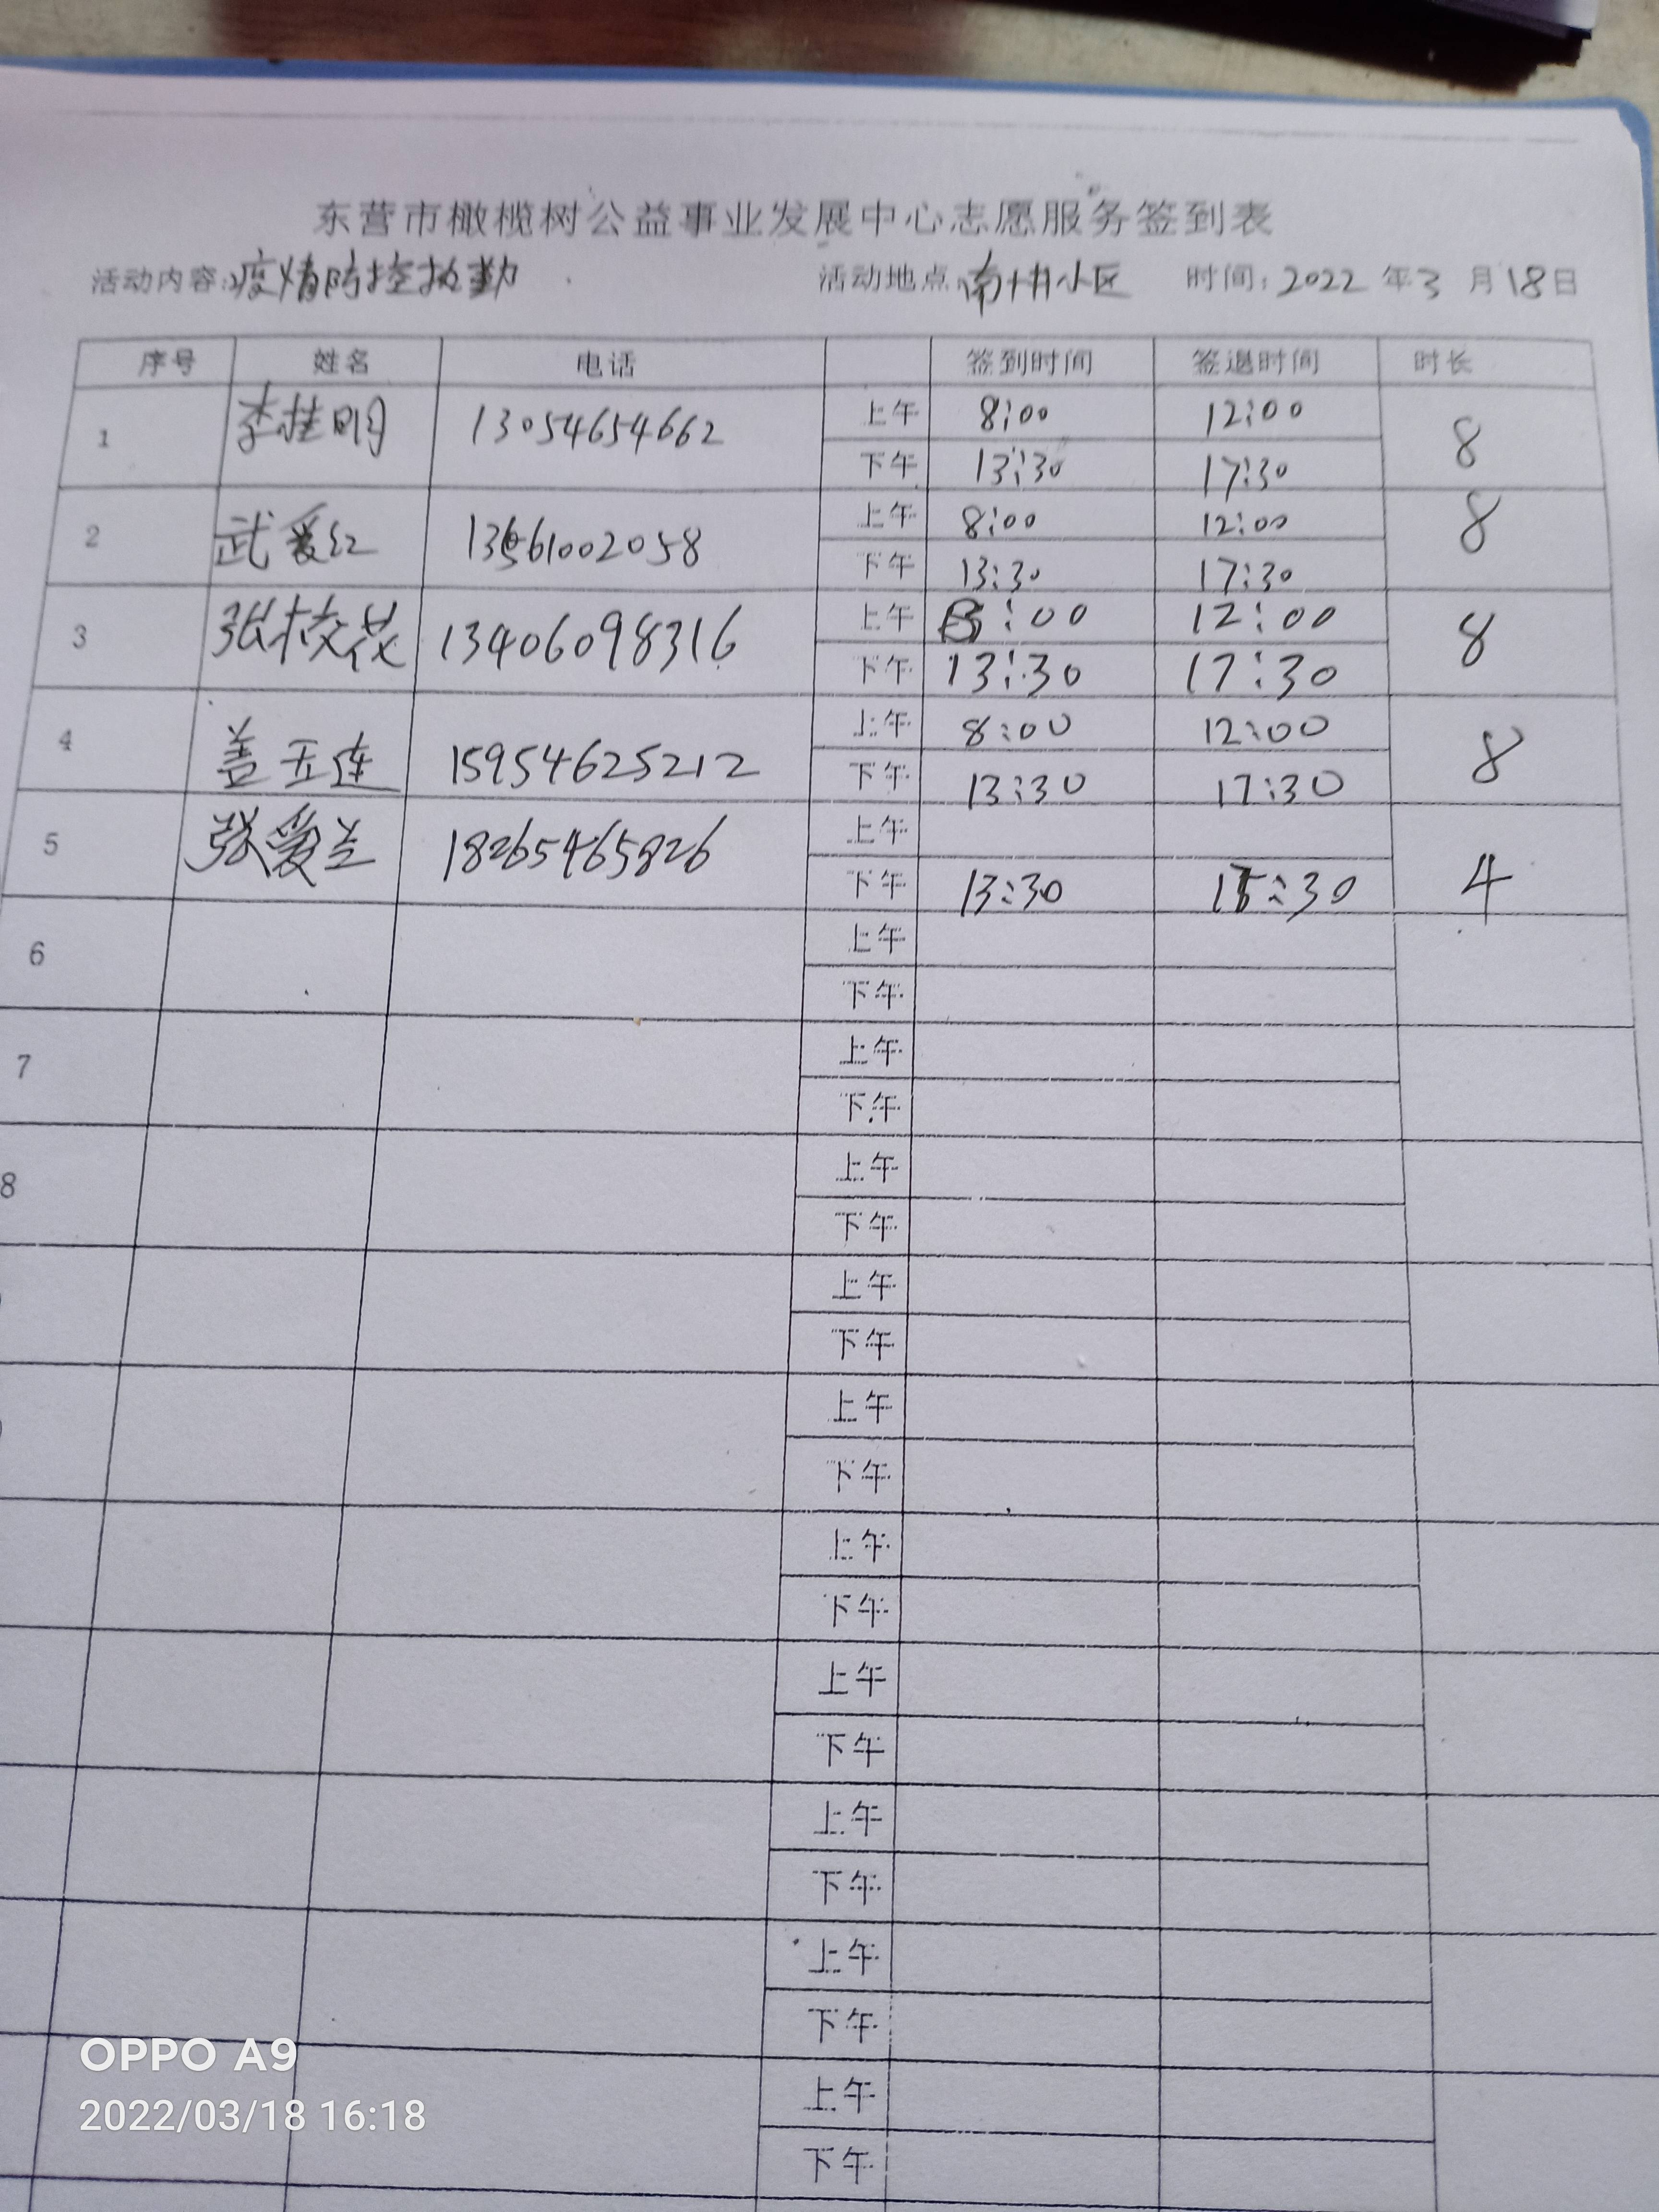 东营市橄榄树公益事业发展中心志愿服务签到表
活动内容:疫情防控执勤 活动地点 南井小区 时间:2022年3月18日
序号 姓名 电话 签到时间 签退时间 时长
1 李桂明 13054654662 上午 8:00 12:00 8
下午 13:30 17:30
2 武爱红 13561002058 上午 8:00 12:00 8
下午 13:30 17:30
3 张枝花 13406098316 上午 8:00 12:00 8
下午 13:30 17:30
4 盖玉连 15954625212 上午 8:00 12:00 8
下午 13:30 17:30
5 张爱兰 18265465826 上午 4
下午 13:30 17:30
6 上午
下午
7 上午
下午
8 上午
下午
上午
下午
上午
下午
上午
下午
上午
下午
上午
下午
上午
下午
上午
下午
OPPO A9
2022/03/18 16:18